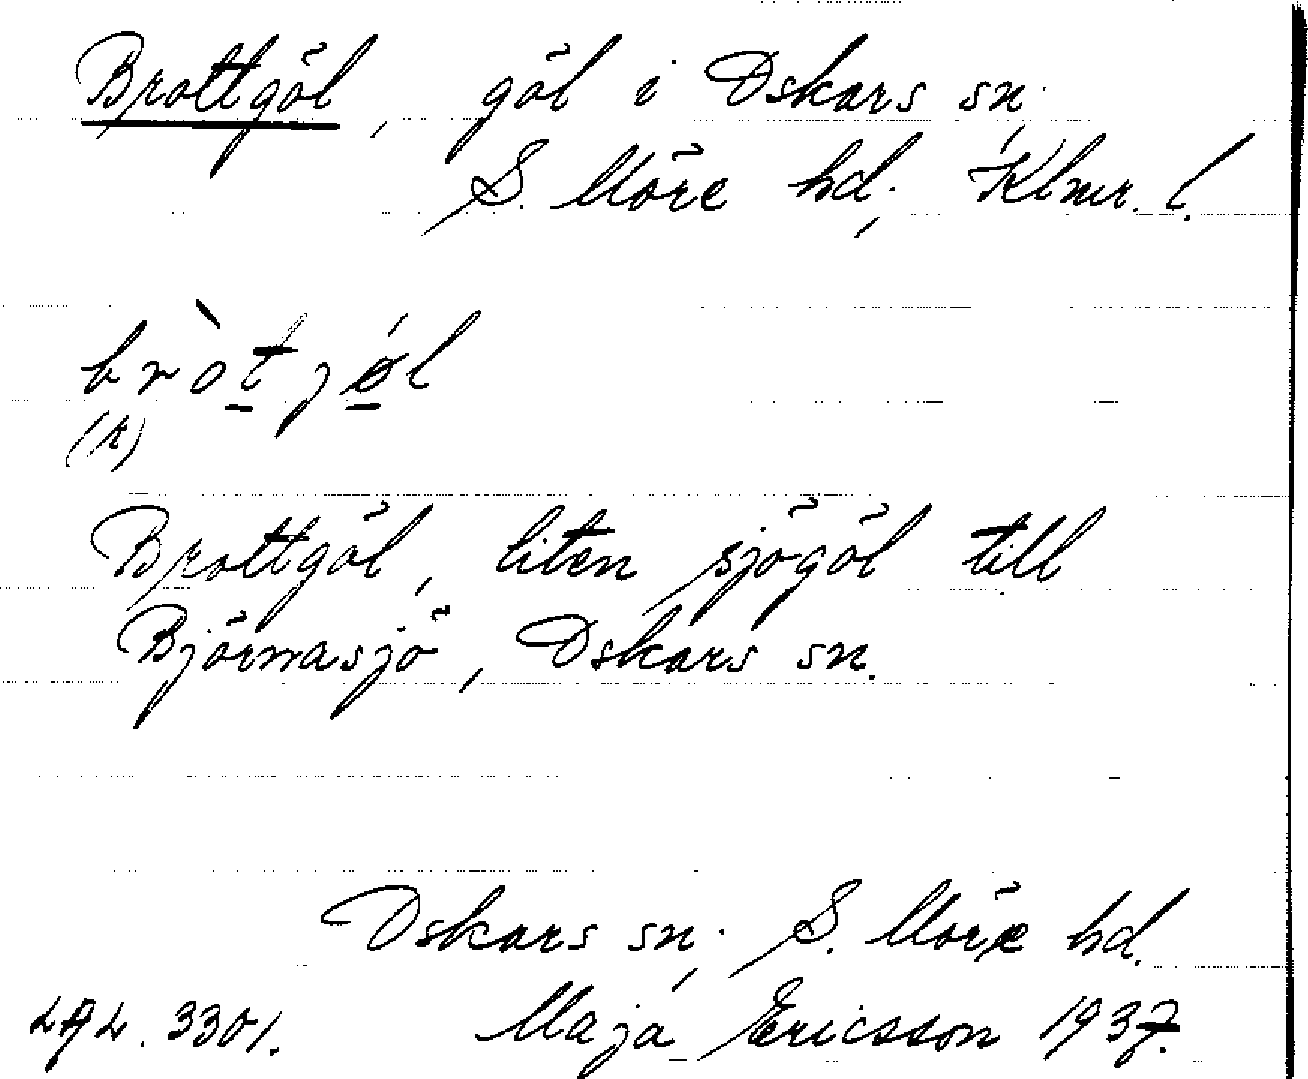 Brottgöl, göl i Oskars sn.,
S. Möre hd., Klmr. l.
bròtgǿl
(r)
Brottgöl, liten sjögöl till
Björnasjö, Oskars sn.
Oskars sn., S. Möre hd.
3301. Maja Ericsson 1937.